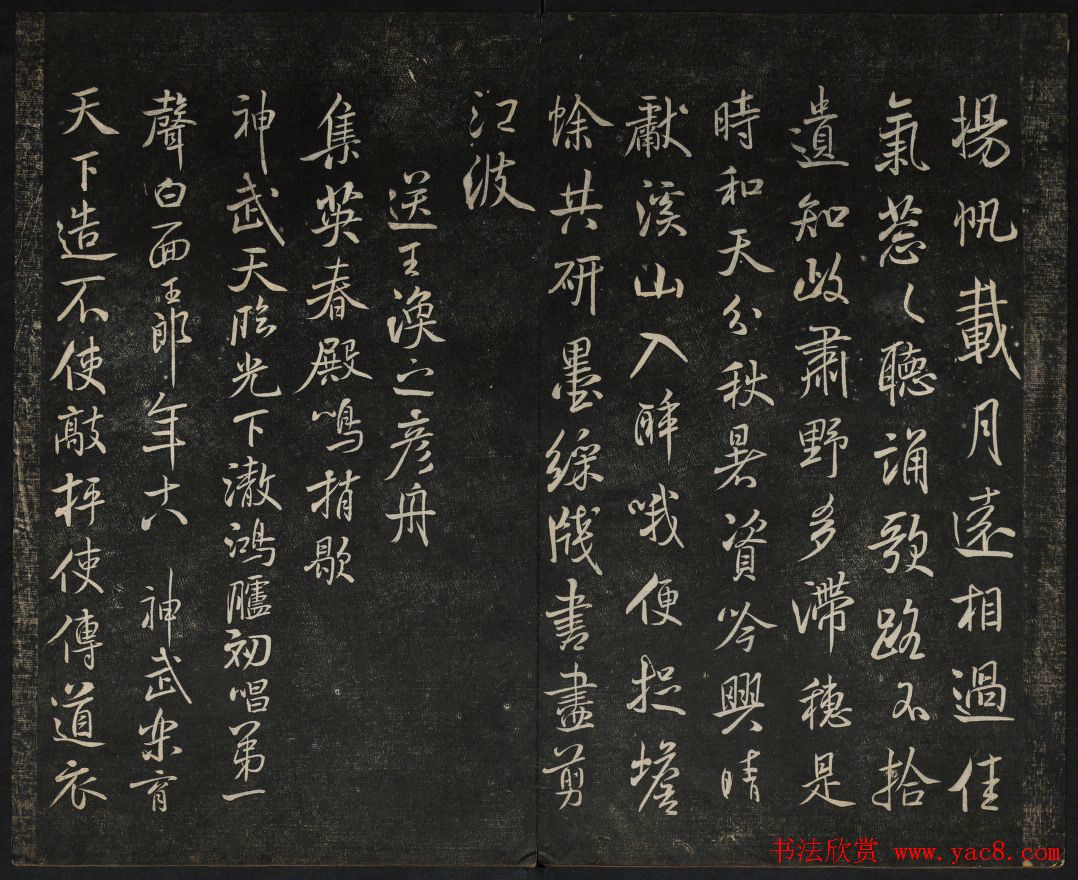 揚帆載月遠相過佳
氣葱〻聽誦歌路不拾
遺知政肅野多滯穗是
時和天分秋暑資吟興晴
獻溪山入醉哦便捉蟾
蜍共研墨綵牋書盡剪
江波
送王渙之彦舟
集英春殿鳴捎歇
神武天臨光下澈鴻臚初唱第一
聲白面王郎年十八 神武樂育
天下造不使敲抨使傳道衣
书法欣赏 www.yac8.com